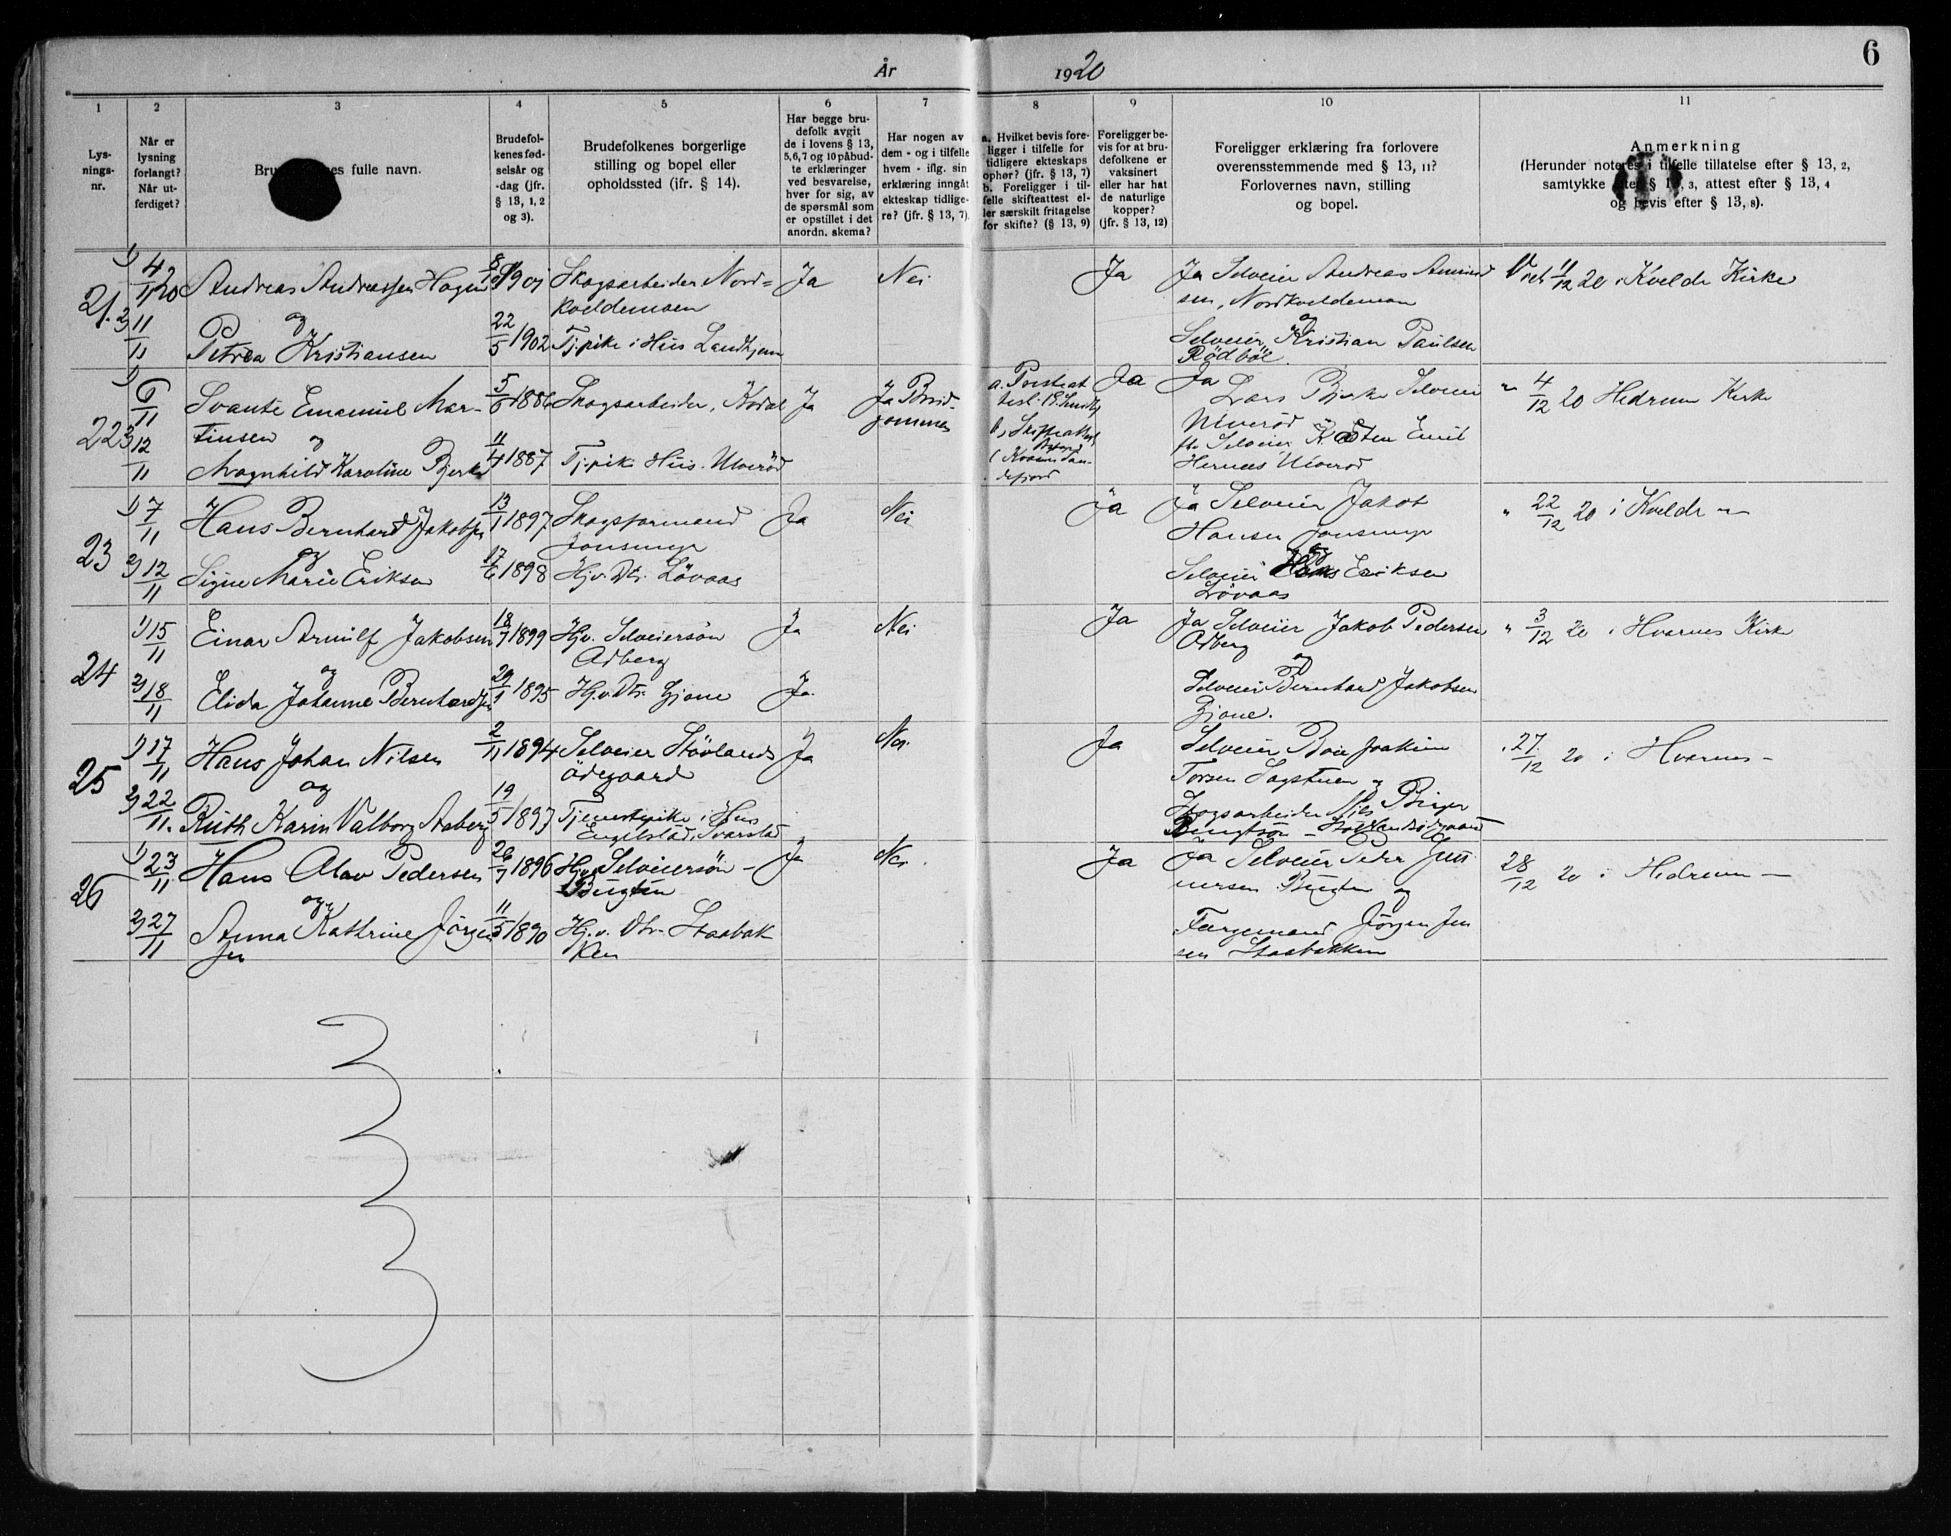 År 1920
6
1 2 3 4 5 6 7 8 9 10 11
Lys-
nings-
nr.
Når er
lysning
forlangt?
Når ut-
ferdiget?
fulle navn.
Brudefol-
kenes fød-
selsår og
-dag (jfr.
§ 13, 1, 2
og 3).
Brudefolkenes borgerlige
stilling og bopel eller
opholdssted (ifr. § 14).
Har begge bru-
defolk avgit
de i lovens § 13,
5,6,7 og 10 påbud-
te erklæringer
ved besvarelse,
hver for sig, av
de spørsmål som
er opstillet i det
anordn. skema?
Har nogen av
dem - og i tilfelle
hvem - iflg. sin
erklæring inngåt
ekteskap tidlige-
re? (jfr. § 13, 7).
a. Hvilket bevis fore-
ligger i tilfelle for
tidligere ekteskaps
ophør? (jfr. § 13, 7)
b. Foreligger i til-
felle skifteattest el-
ler særskilt fritagelse
for skifte? (§ 13, 9)
Foreligger be-
vis for at bru-
defolkene er
vaksinert
eller har hat
de naturlige
kopper?
(jfr. § 13, 12)
Foreligger erklæring fra forlovere
overensstemmende med § 13, 11?
Forlovernes navn, stilling
og bopel.
Anmerkning
(Herunder noteres i tilfelle tillatelse efter § 13, 2,
samtykke efter § 13, 3, attest efter § 13, 4
og bevis efter § 13, 8).
21.
1) 4/11 20
2) 11/11
Andreas Andreassen Hagen
og
Petrea Kristiansen
1901
22/5 1902
Skogsarbeider Nord-
kveldemoen
Tj.pike i Hus Landhjem
Ja
Nei
Ja
Ja Selveier Andreas
sen, Nordkveldemoen
og
Selveier Kristian Paulsen
Rödböl
Viet 11/12 20 i Kvelde Kirke
22
1) 6/11
2) 12/11
Svante Emanuel Mar-
tinsen
og
Magnhild Karoline Bjerke
5/6 1886
11/4 1887
Skogsarbeider, Kodal
Tj.pike Hus. Ulveröd
Ja
Ja Brud-
gommen
a.
b, Skifteattest
Ja
Ja
Lars Bjerke Selveier
Ulveröd
Selveier Emil
Hernes Ulveröd
" 4/12 20 Hedrum Kirke
23
1) 7/11
2) 12/11
Hans Bernhard Jakobsen
og
Signe Marie Eriksen
13/1 1897
17/6 1898
Skogsformand
Jonsmyr
Hj.v. Dtr. Lövaas
Ja
Nei
Ja
Ja Selveier Jakob
Hansen Jonsmyr
og
Selveier Hans Eriksen
Lövaas
" 22/12 20 i Kvelde "
24
1) 15/11
2) 18/11
Einar Arnulf Jakobsen
og
Elida Johanne Bernhardsen
18/7 1899
29/1 1895
Hj.v. Selveiersön
Odberg
Hj.v. Dtr. Gjone
Ja
Ja.
Nei
Ja
Ja Selveier Jakob Pedersen
Odberg
og
Selveier Bernhard Jakobsen
Gjone.
" 3/12 20 i Hvarnes Kirke
25
1) 17/11
2) 22/11.
Hans Johan Nilsen
og
Ruth Karin Valborg Aaberg
2/11 1894
19/5 1897
Selveier Stövlands
ödegaard
Tjenestepike i Hus
Engelstad, Svarstad
Ja
Nei
Ja
Selveier Boie Joakim
Torsen Sagstuen og
Skogsarbeider Nils Birger
Bengtsön - Stövlandsödegaard
" 27/12 20 i Hvarnes -
26
1) 23/11
2) 27/11
Hans Olav Pedersen
og
Anna Kathrine Jörgen
sen
26/7 1896
11/5 1890
Hj.v. Selveiersön -
Bugten
Hj.v. Dtr. Staabak
ken
Ja
Nei
Ja
Ja Selveier Peder Gun
nersen Bugten og
Jörgen Jen
sen Staabakken
28/12 20 i Hedrum -